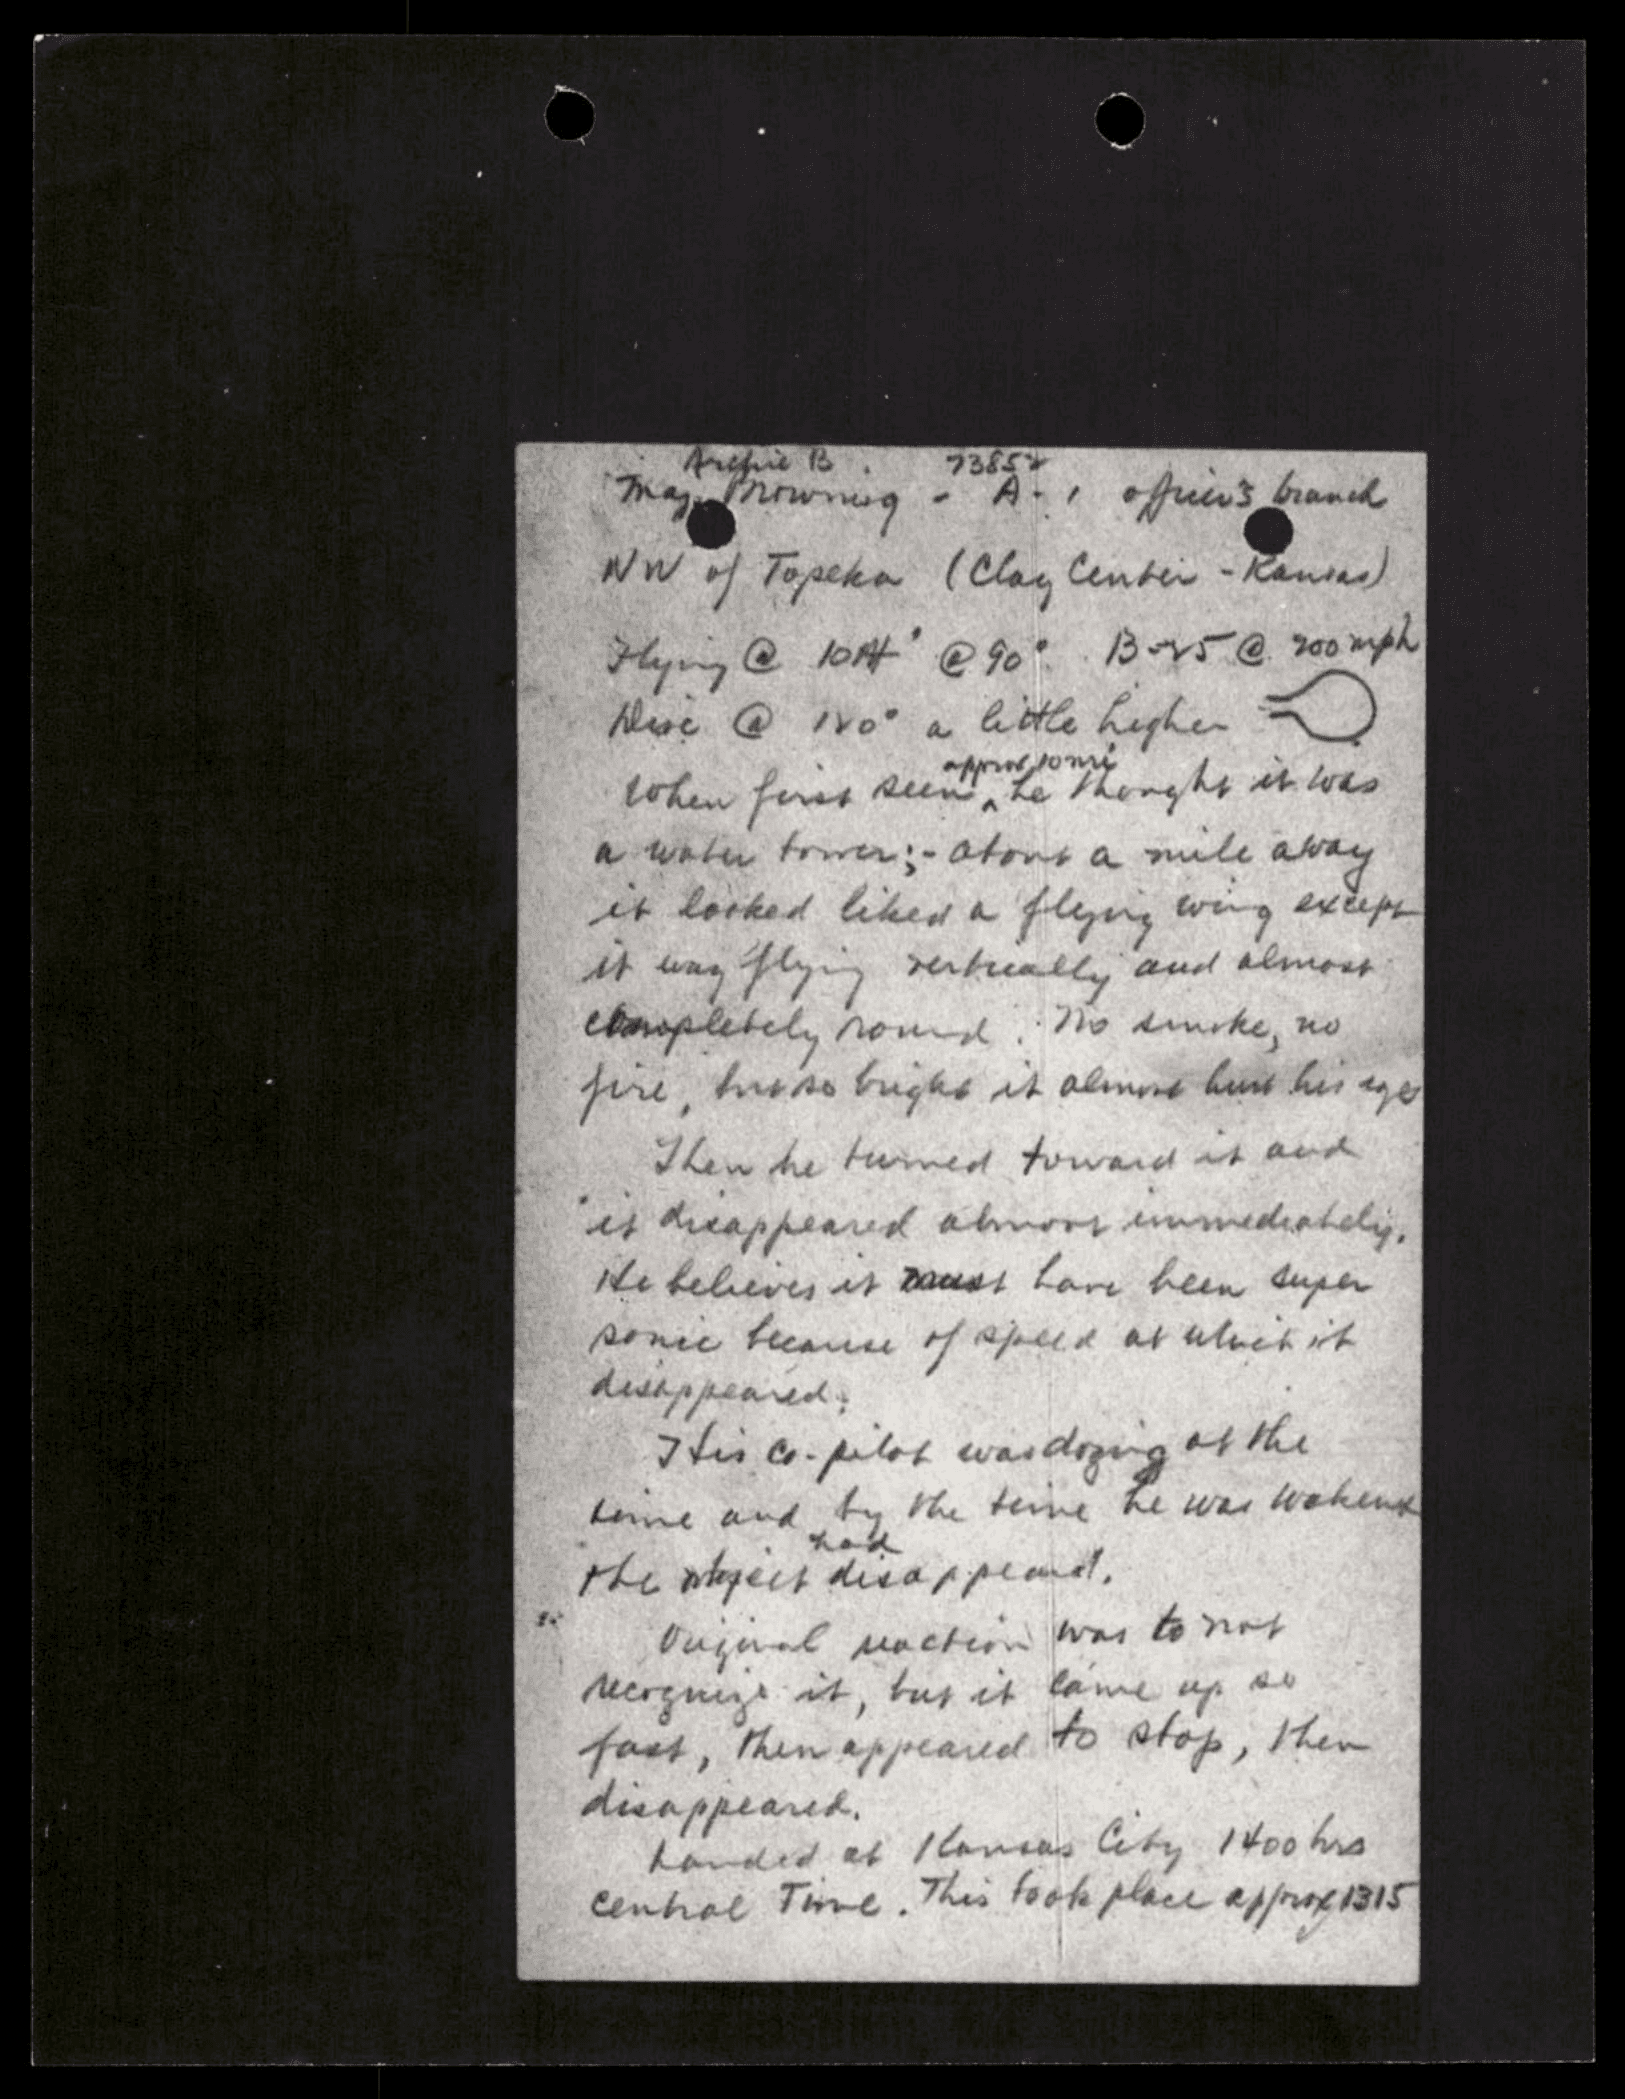 Archie B. 73852
Maj. Browning - A-1 officer's branch
NW of Topeka (Clay Center - Kansas)
Flying @ 10M' @ 90° B-25 @ 200 mph
Disc @ 120° a little higher
approx 10 mi
When first seen ^ he thought it was
a water tower; - about a mile away
it looked liked a flying wing except
it way flying vertically and almost
completely round. No smoke, no
fire, but so bright it almost hurt his eyes
Then he turned toward it and
it disappeared almost immediately.
He believes it must have been super
sonic because of speed at which it
disappeared.
His co-pilot was dozing at the
time and by the time he was wakened
had
the object disappeared.
Original reaction was to not
recognize it, but it came up so
fast, then appeared to stop, then
disappeared.
Landed at Kansas City 1400 hrs
Central Time. This took place approx 1315